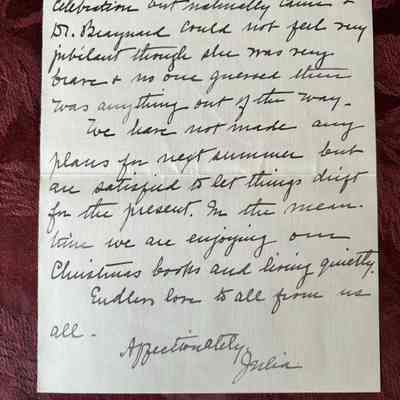 Celebration but naturally Laura &
Dr. Beaynard could not feel very
jubilant though she was very
brave & no one guessed there
was anything out of the way.
We have not made any
plans for next summer but
are satisfied to let things drift
for the present. In the mean-
time we are enjoying our
Christmas books and living quietly.
Endless love to all from us
all.
Affectionately,
Julia